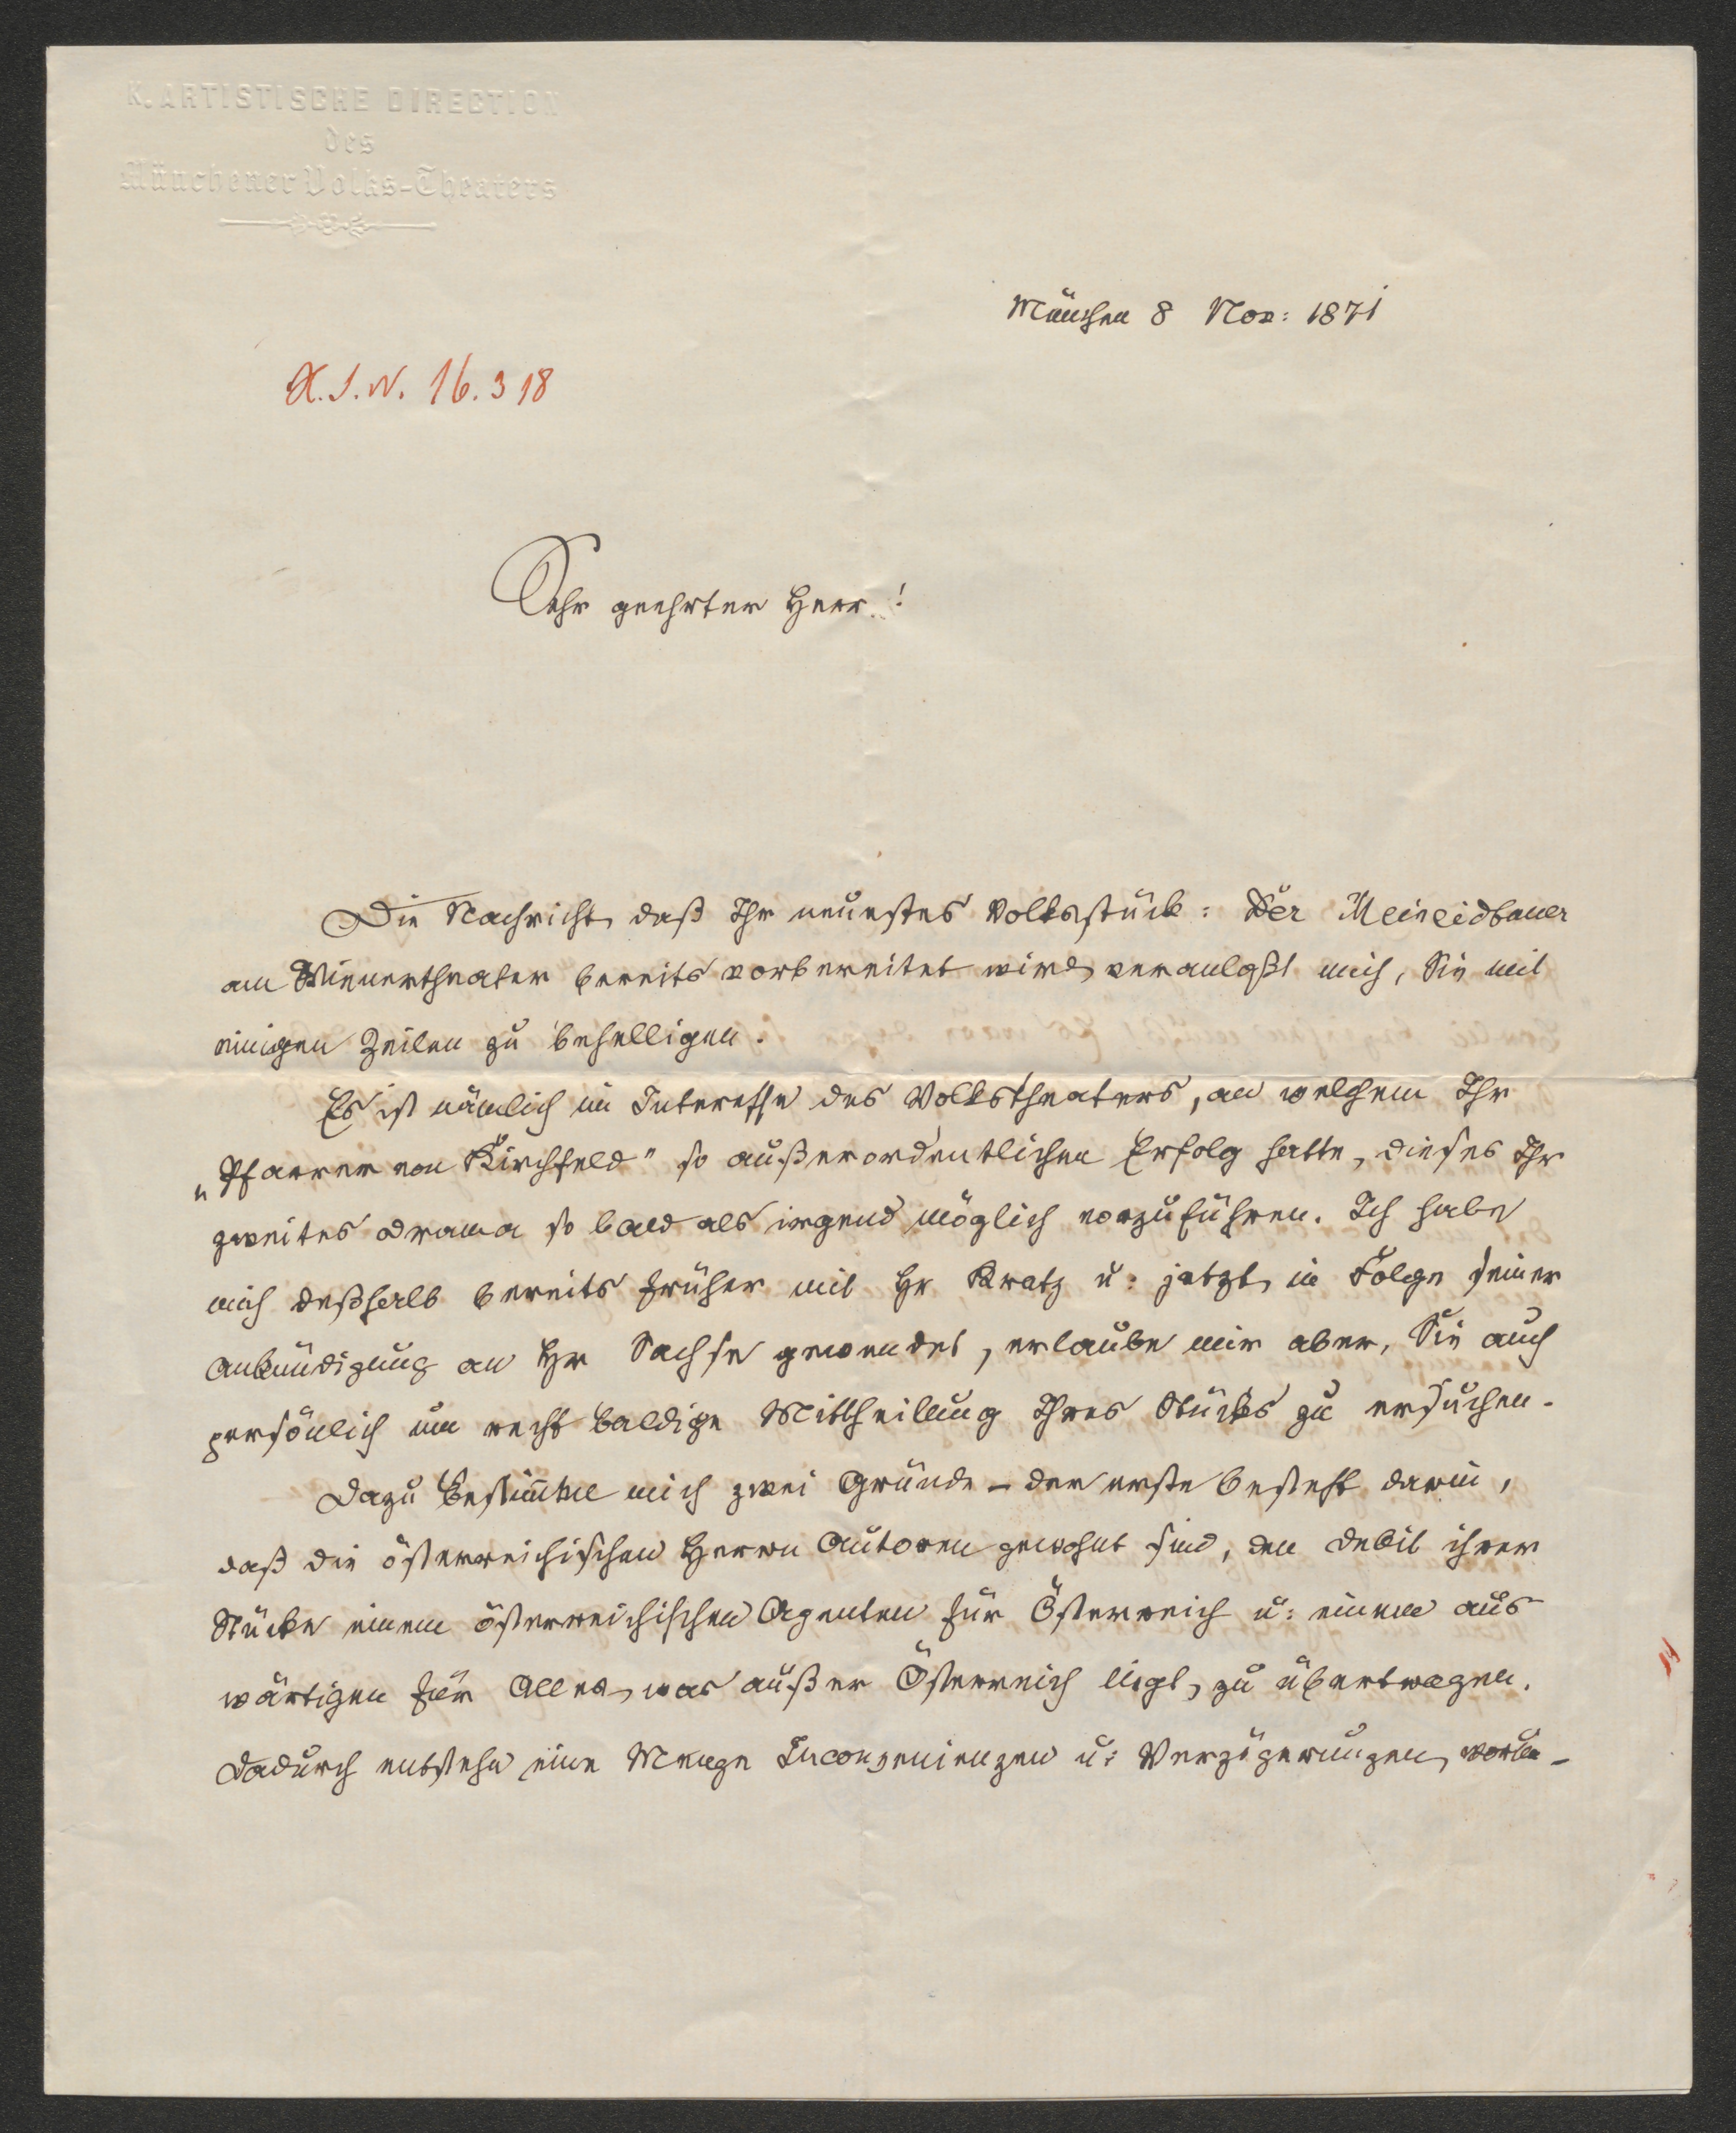 K. ARTISTISCHE DIRECTION
des
Münchener Volks-Theaters
München 8 Nov: 1871
H.I.N. 16.318
Sehr geehrter Herr!
Die Nachricht, daß Ihr neuestes Volksstück: Der Meineidbauer
am Wienertheater bereits vorbereitet wird, veranlaßt mich, Sie mit
einigen Zeilen zu behelligen.
Es ist nämlich im Interesse des Volkstheaters, an welchem Ihr
„Pfarrer von Kirchfeld" so außerordentlichen Erfolg hatte, dieses Ihr
zweites Drama so bald als irgend möglich vorzuführen. Ich habe
mich deßhalb bereits früher mit Hr Kratz u: jetzt, in Folge seiner
Ankündigung an Hr Sachse gewendet, erlaube mir aber, Sie auch
persönlich um recht baldige Mittheilung Ihres Stücks zu ersuchen.
Dazu bestimmen mich zwei Gründe – der erste besteht darin,
daß die österreichischen Herrn Autoren gewohnt sind, den Debit ihrer
Stücke einem österreichischen Agenten für Österreich u: einem aus
wärtigen für Alles, was außer Österreich liegt, zu übertragen.
Dadurch entstehn eine Menge Inconvenienzen u: Verzögerungen,